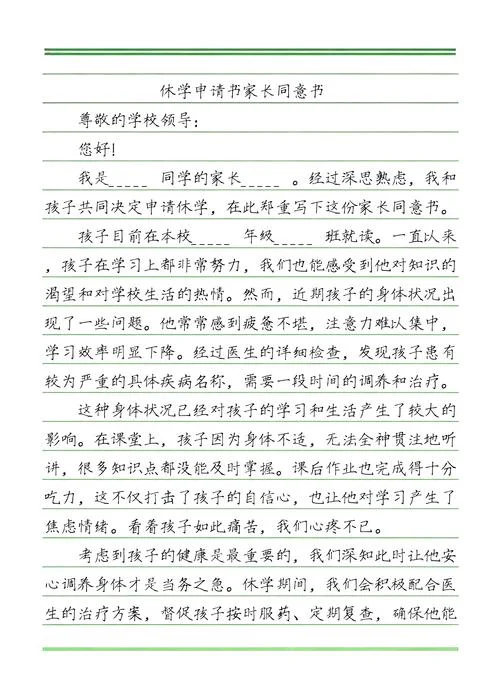 休学申请书家长同意书
尊敬的学校领导：
您好！
我是_____ 同学的家长_____ 。经过深思熟虑，我和
孩子共同决定申请休学，在此郑重写下这份家长同意书。
孩子目前在本校_____ 年级_____ 班就读。一直以来
，孩子在学习上都非常努力，我们也能感受到他对知识的
渴望和对学校生活的热情。然而，近期孩子的身体状况出
现了一些问题。他常常感到疲惫不堪，注意力难以集中，
学习效率明显下降。经过医生的详细检查，发现孩子患有
较为严重的具体疾病名称，需要一段时间的调养和治疗。
这种身体状况已经对孩子的学习和生活产生了较大的
影响。在课堂上，孩子因为身体不适，无法全神贯注地听
讲，很多知识点都没能及时掌握。课后作业也完成得十分
吃力，这不仅打击了孩子的自信心，也让他对学习产生了
焦虑情绪。看着孩子如此痛苦，我们心疼不已。
考虑到孩子的健康是最重要的，我们深知此时让他安
心调养身体才是当务之急。休学期间，我们会积极配合医
生的治疗方案，督促孩子按时服药、定期复查，确保他能